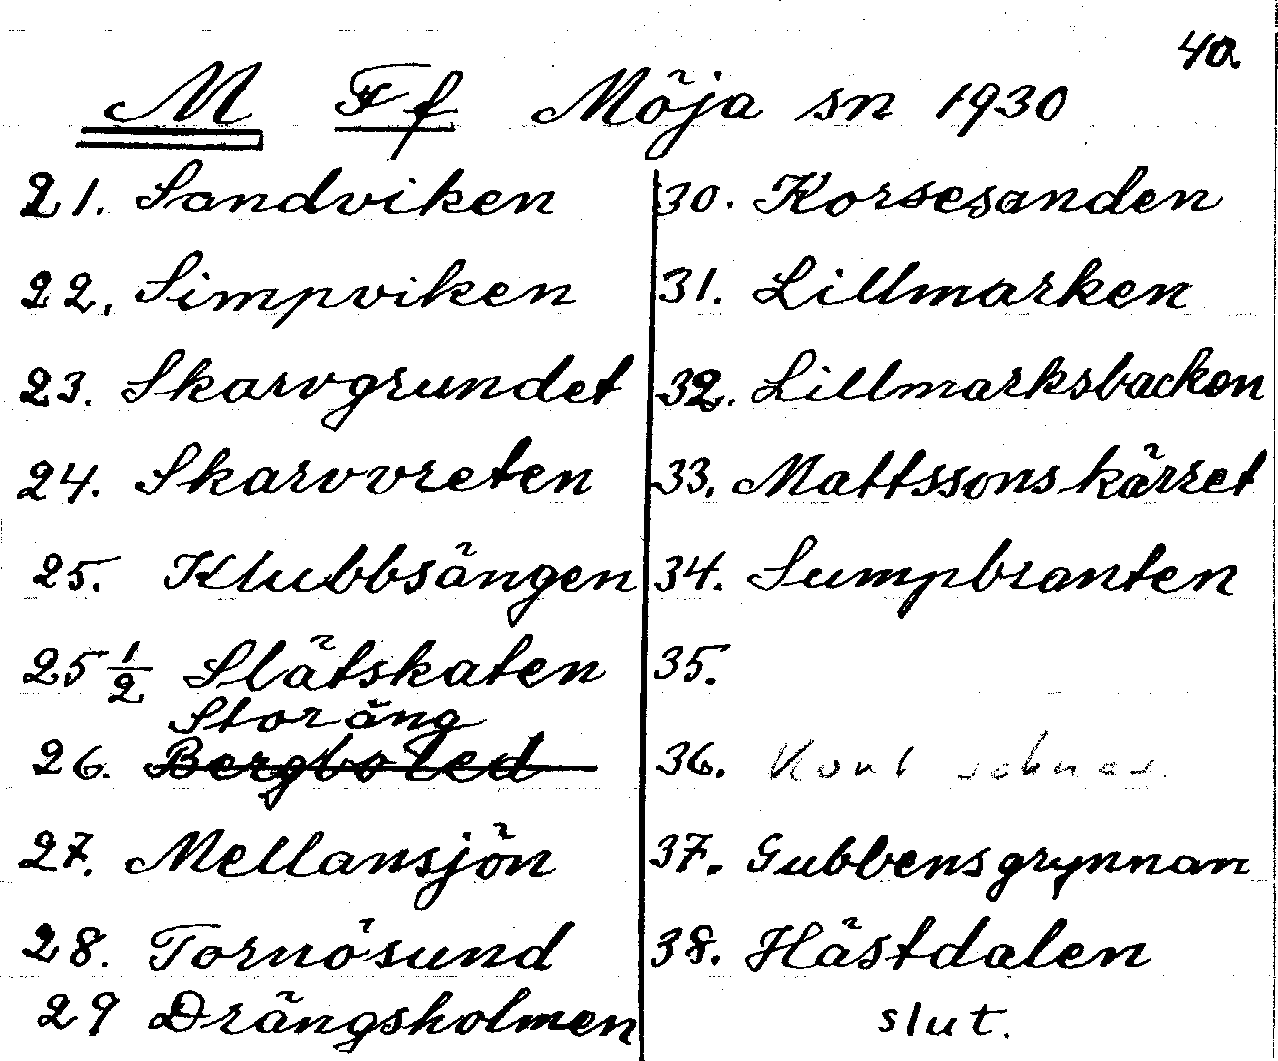 40.
M Ff Möja sn 1930
21. Sandviken
22. Simpviken
23. Skarvgrundet
24. Skarvvreten
25. Klubbsängen
25 1/2 Slätskaten
Storäng
26. Bergbo led
27. Mellansjön
28. Tornösund
29 Drängsholmen
30. Korsesanden
31. Lillmarken
32. Lillmarksbacken
33. Mattssonskärret
34. Sumpbranten
35.
36.
37. Gubbensgrynnan
38. Hästdalen
slut.